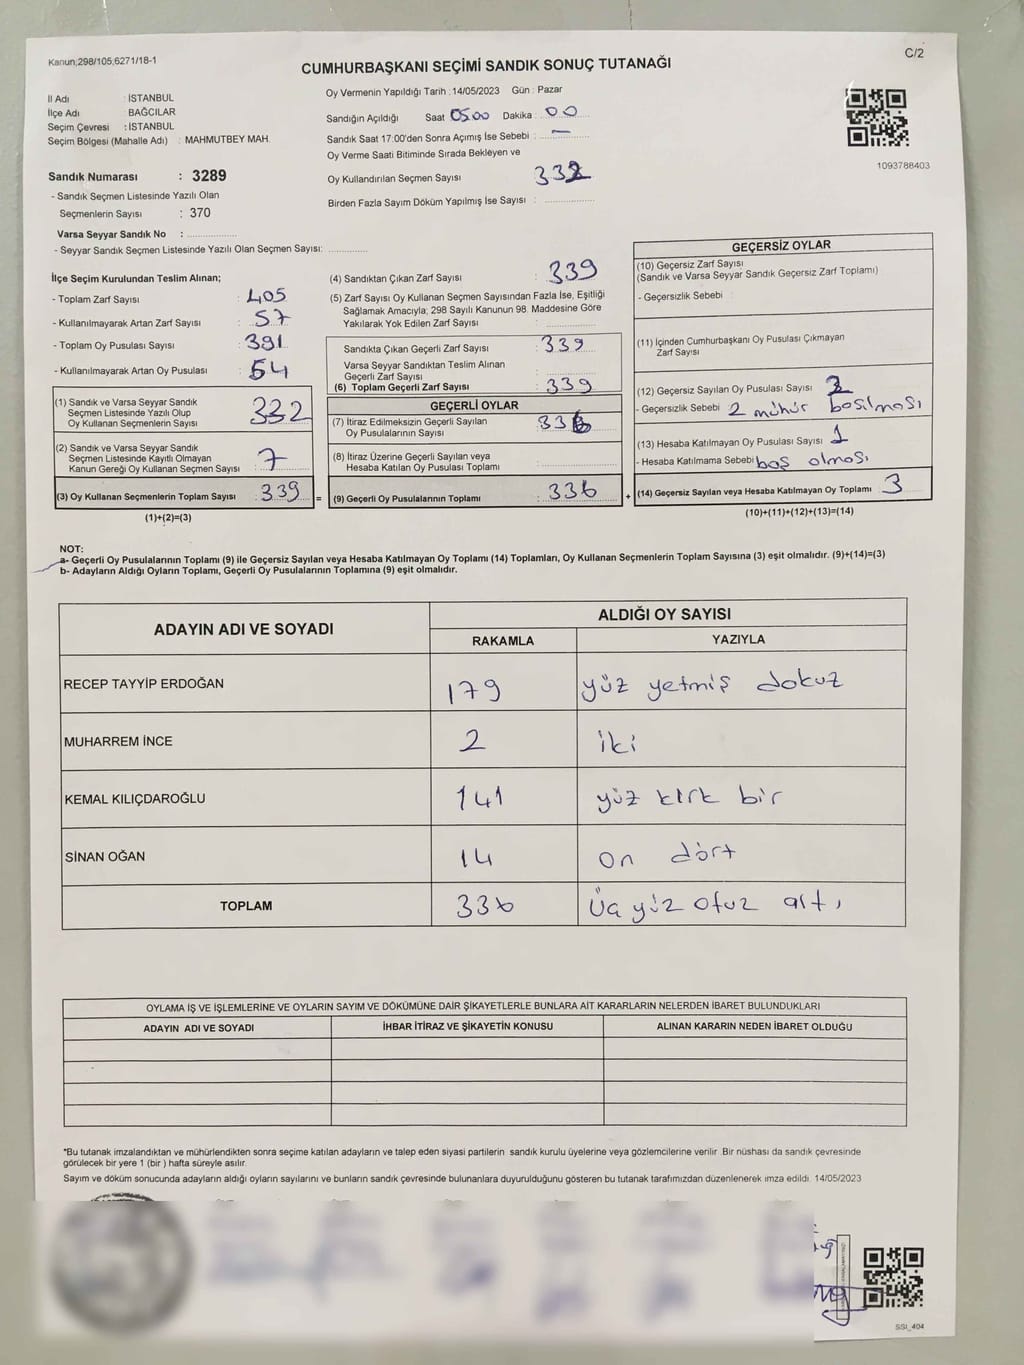 Kanun;298/105;6271/18-1
C/2
CUMHURBAŞKANI SEÇİMİ SANDIK SONUÇ TUTANAĞI
İl Adı : İSTANBUL
İlçe Adı : BAĞCILAR
Seçim Çevresi : İSTANBUL
Seçim Bölgesi (Mahalle Adı) : MAHMUTBEY MAH.
Sandık Numarası : 3289
- Sandık Seçmen Listesinde Yazılı Olan
Seçmenlerin Sayısı : 370
Varsa Seyyar Sandık No :
- Seyyar Sandık Seçmen Listesinde Yazılı Olan Seçmen Sayısı:
Oy Vermenin Yapıldığı Tarih : 14/05/2023 Gün : Pazar
Sandığın Açıldığı Saat 05.00 Dakika : 00
Sandık Saat 17:00'den Sonra Açımış İse Sebebi : —
Oy Verme Saati Bitiminde Sırada Bekleyen ve
Oy Kullandırılan Seçmen Sayısı 332
Birden Fazla Sayım Döküm Yapılmış İse Sayısı :
1093788403
İlçe Seçim Kurulundan Teslim Alınan;
- Toplam Zarf Sayısı : 405
- Kullanılmayarak Artan Zarf Sayısı : 57
- Toplam Oy Pusulası Sayısı : 391
- Kullanılmayarak Artan Oy Pusulası : 54
(1) Sandık ve Varsa Seyyar Sandık
Seçmen Listesinde Yazılı Olup
Oy Kullanan Seçmenlerin Sayısı 332
(2) Sandık ve Varsa Seyyar Sandık
Seçmen Listesinde Kayıtlı Olmayan
Kanun Gereği Oy Kullanan Seçmen Sayısı : 7
(3) Oy Kullanan Seçmenlerin Toplam Sayısı : 339 =
(1)+(2)=(3)
(4) Sandıktan Çıkan Zarf Sayısı : 339
(5) Zarf Sayısı Oy Kullanan Seçmen Sayısından Fazla İse, Eşitliği
Sağlamak Amacıyla; 298 Sayılı Kanunun 98. Maddesine Göre
Yakılarak Yok Edilen Zarf Sayısı :
Sandıkta Çıkan Geçerli Zarf Sayısı : 339
Varsa Seyyar Sandıktan Teslim Alınan
Geçerli Zarf Sayısı :
(6) Toplam Geçerli Zarf Sayısı : 339
GEÇERLİ OYLAR
(7) İtiraz Edilmeksizin Geçerli Sayılan
Oy Pusulalarının Sayısı : 336
(8) İtiraz Üzerine Geçerli Sayılan veya
Hesaba Katılan Oy Pusulası Toplamı :
(9) Geçerli Oy Pusulalarının Toplamı : 336 +
GEÇERSİZ OYLAR
(10) Geçersiz Zarf Sayısı
(Sandık ve Varsa Seyyar Sandık Geçersiz Zarf Toplamı)
- Geçersizlik Sebebi :
(11) İçinden Cumhurbaşkanı Oy Pusulası Çıkmayan
Zarf Sayısı
(12) Geçersiz Sayılan Oy Pusulası Sayısı : 2
- Geçersizlik Sebebi : 2 mühür basılması
(13) Hesaba Katılmayan Oy Pusulası Sayısı : 1
- Hesaba Katılmama Sebebi : boş olması
(14) Geçersiz Sayılan veya Hesaba Katılmayan Oy Toplamı : 3
(10)+(11)+(12)+(13)=(14)
NOT:
a- Geçerli Oy Pusulalarının Toplamı (9) ile Geçersiz Sayılan veya Hesaba Katılmayan Oy Toplamı (14) Toplamları, Oy Kullanan Seçmenlerin Toplam Sayısına (3) eşit olmalıdır. (9)+(14)=(3)
b- Adayların Aldığı Oyların Toplamı, Geçerli Oy Pusulalarının Toplamına (9) eşit olmalıdır.
ADAYIN ADI VE SOYADI
ALDIĞI OY SAYISI
RAKAMLA YAZIYLA
RECEP TAYYİP ERDOĞAN 179 yüz yetmiş dokuz
MUHARREM İNCE 2 iki
KEMAL KILIÇDAROĞLU 141 yüz kırk bir
SİNAN OĞAN 14 on dört
TOPLAM 336 Üç yüz otuz altı
OYLAMA İŞ VE İŞLEMLERİNE VE OYLARIN SAYIM VE DÖKÜMÜNE DAİR ŞİKAYETLERLE BUNLARA AİT KARARLARIN NELERDEN İBARET BULUNDUKLARI
ADAYIN ADI VE SOYADI İHBAR İTİRAZ VE ŞİKAYETİN KONUSU ALINAN KARARIN NEDEN İBARET OLDUĞU
*Bu tutanak imzalandıktan ve mühürlendikten sonra seçime katılan adayların ve talep eden siyasi partilerin sandık kurulu üyelerine veya gözlemcilerine verilir. Bir nüshası da sandık çevresinde
görülecek bir yere 1 (bir ) hafta süreyle asılır.
Sayım ve döküm sonucunda adayların aldığı oyların sayılarını ve bunların sandık çevresinde bulunanlara duyurulduğunu gösteren bu tutanak tarafımızdan düzenlenerek imza edildi. 14/05/2023
SSI_404